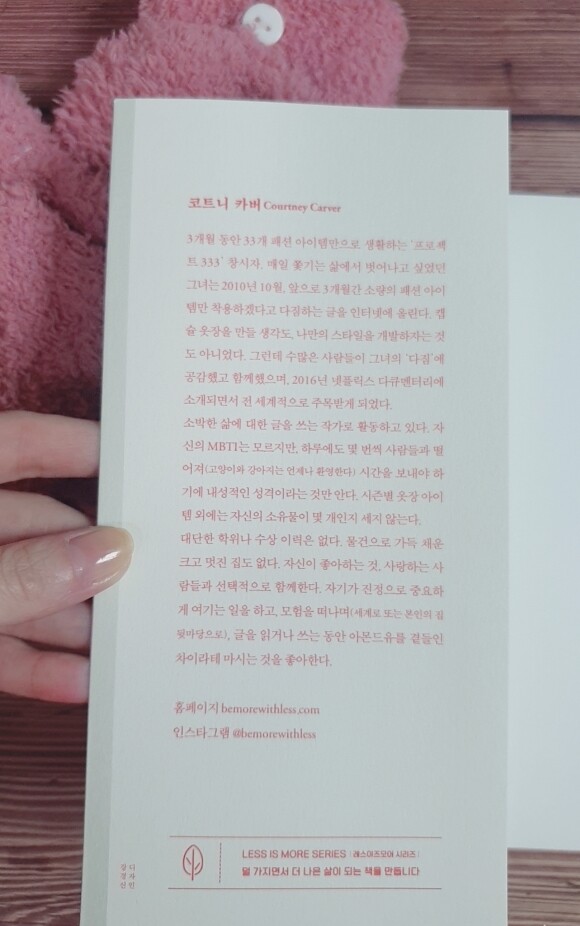 코트니 카버 Courtney Carver
3개월 동안 33개 패션 아이템만으로 생활하는 '프로젝
트 333' 창시자. 매일 쫓기는 삶에서 벗어나고 싶었던
그녀는 2010년 10월, 앞으로 3개월간 소량의 패션 아이
템만 착용하겠다고 다짐하는 글을 인터넷에 올린다. 캡
슐 옷장을 만들 생각도, 나만의 스타일을 개발하자는 것
도 아니었다. 그런데 수많은 사람들이 그녀의 '다짐'에
공감했고 함께했으며, 2016년 넷플릭스 다큐멘터리에
소개되면서 전 세계적으로 주목받게 되었다.
소박한 삶에 대한 글을 쓰는 작가로 활동하고 있다. 자
신의 MBTI는 모르지만, 하루에도 몇 번씩 사람들과 떨
어져(고양이와 강아지는 언제나 환영한다) 시간을 보내야 하
기에 내성적인 성격이라는 것만 안다. 시즌별 옷장 아이
템 외에는 자신의 소유물이 몇 개인지 세지 않는다.
대단한 학위나 수상 이력은 없다. 물건으로 가득 채운
크고 멋진 집도 없다. 자신이 좋아하는 것, 사랑하는 사
람들과 선택적으로 함께한다. 자기가 진정으로 중요하
게 여기는 일을 하고, 모험을 떠나며(세계로 또는 본인의 집
뒷마당으로), 글을 읽거나 쓰는 동안 아몬드유를 곁들인
차이라테 마시는 것을 좋아한다.
홈페이지 bemorewithless.com
인스타그램 @bemorewithless
LESS IS MORE SERIES | 레스이즈모어 시리즈 |
덜 가지면서 더 나은 삶이 되는 책을 만듭니다
디자인
강경신